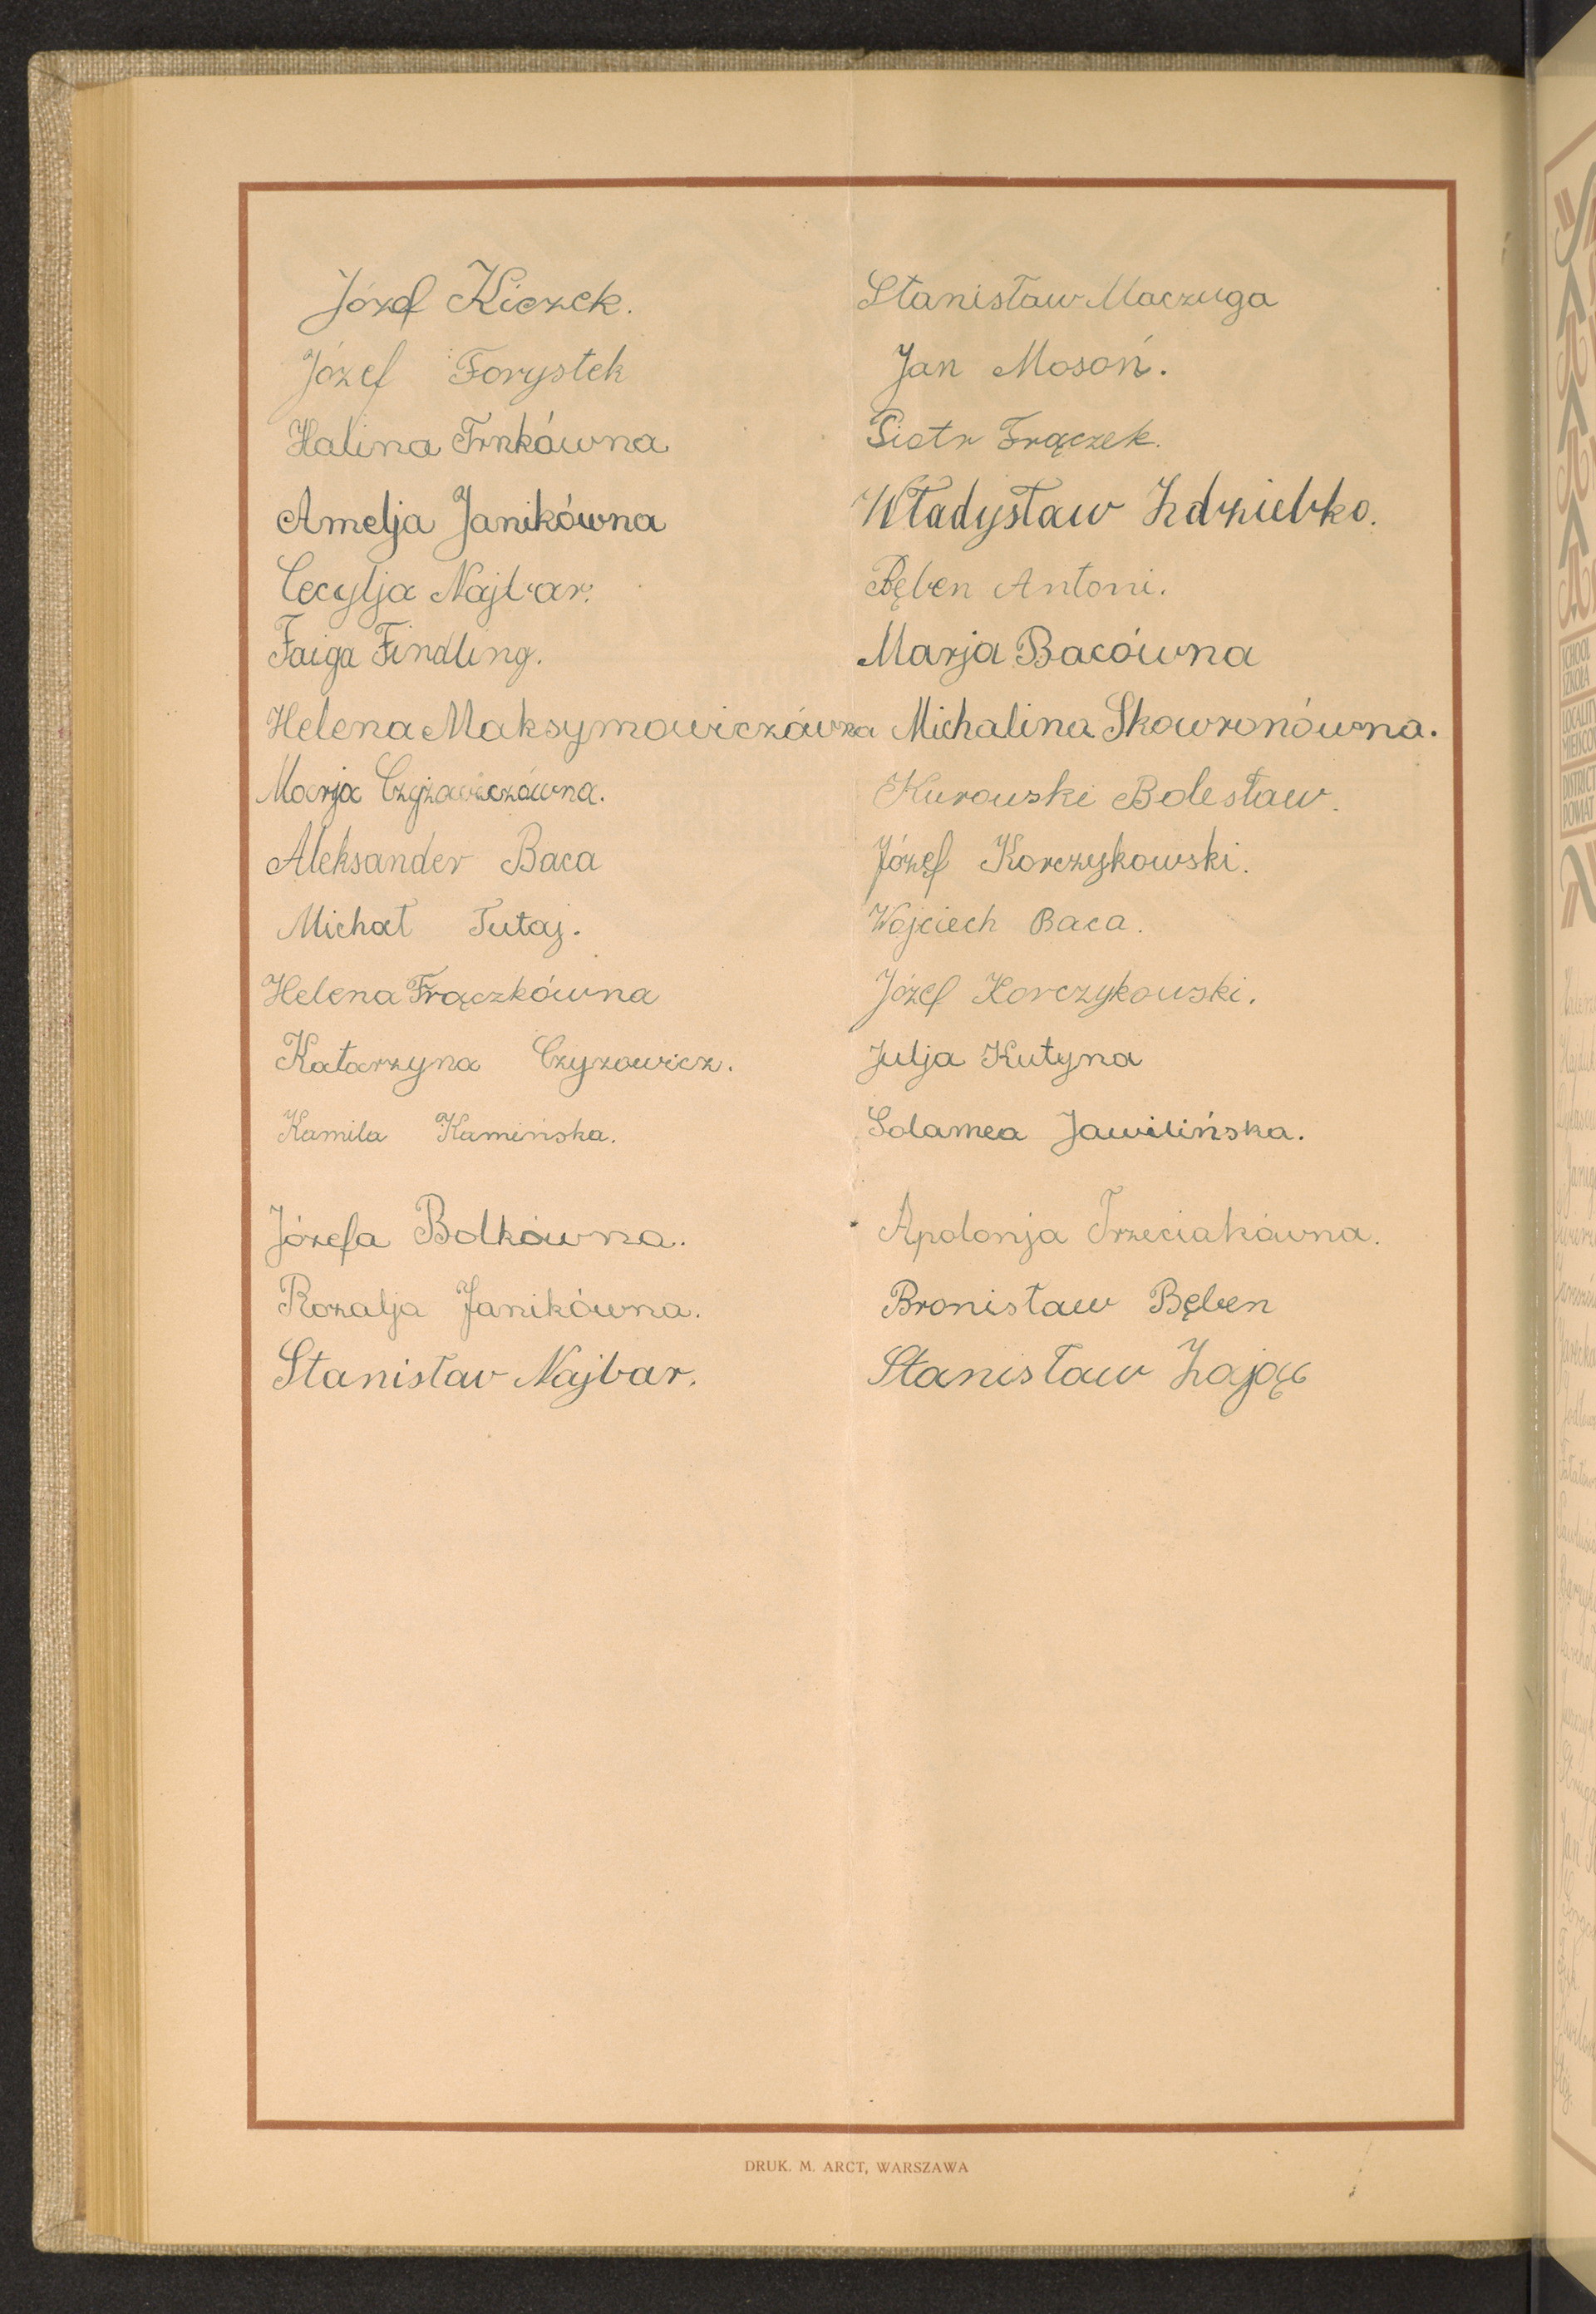 Józef Kiczek.
Józef Forystek
Halina Frnkówna
Amelja Janikówna
Cecylja Najbar.
Faiga Findling.
Helena Maksymowiczówna
Marja Czyżowiczówna.
Aleksander Baca
Michał Tutaj.
Helena Frączkówna
Katarzyna Czyzowicz.
Kamila Kamińska.
Józefa Bolkówna.
Rozalja Janikówna.
Stanisław Najbar.
Stanisław Maczuga
Jan Mosoń.
Piotr Frączek.
Władysław Zdziebko.
Bęben Antoni.
Marja Bacówna
Michalina Skowronówna.
Kurowski Bolesław.
Józef Korczykowski.
Wojciech Baca.
Józef Korczykowski.
Julja Kutyna
Solamea Jawilińska.
Apolonja Trzeciakówna.
Bronisław Bęben
Stanisław Zając
DRUK. M. ARCT, WARSZAWA
SCHOOL
SZKOŁA
LOCALITY
DISTRICT
POWIAT